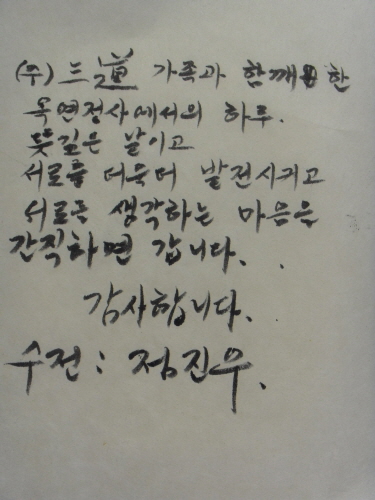 (주) 三道 가족과 함께 한
옥연정사에서의 하루.
뜻깊은 날이고
서로를 더욱더 발전시키고
서로를 생각하는 마음을
간직하면 갑니다.
감사합니다.
수전: 정진우.